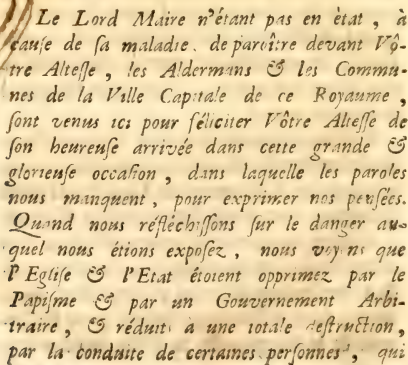 Le Lord Maire n'étant pas en ètat, à
cauſe de ſa maladie de paroître devant Vô-
tre Alteſſe, les Aldermans & les Commu-
nes de la Ville Capitale de ce Royaume,
ſont venus ici pour féliciter Vôtre Alteſſe de
ſon heureuſe arrivée dans cette grande &
glorieuſe occaſion, dans laquelle les paroles
nous manquent, pour exprimer nos penſées.
Quand nous réfléchiſſons ſur le danger au-
quel nous étions expoſez, nous voyons que
l'Egliſe & l'Etat étoient opprimez par le
Papiſme & par un Gouvernement Arbi-
traire, & réduits à une totale deſtruction,
par la conduite de certaines perſonnes, qui